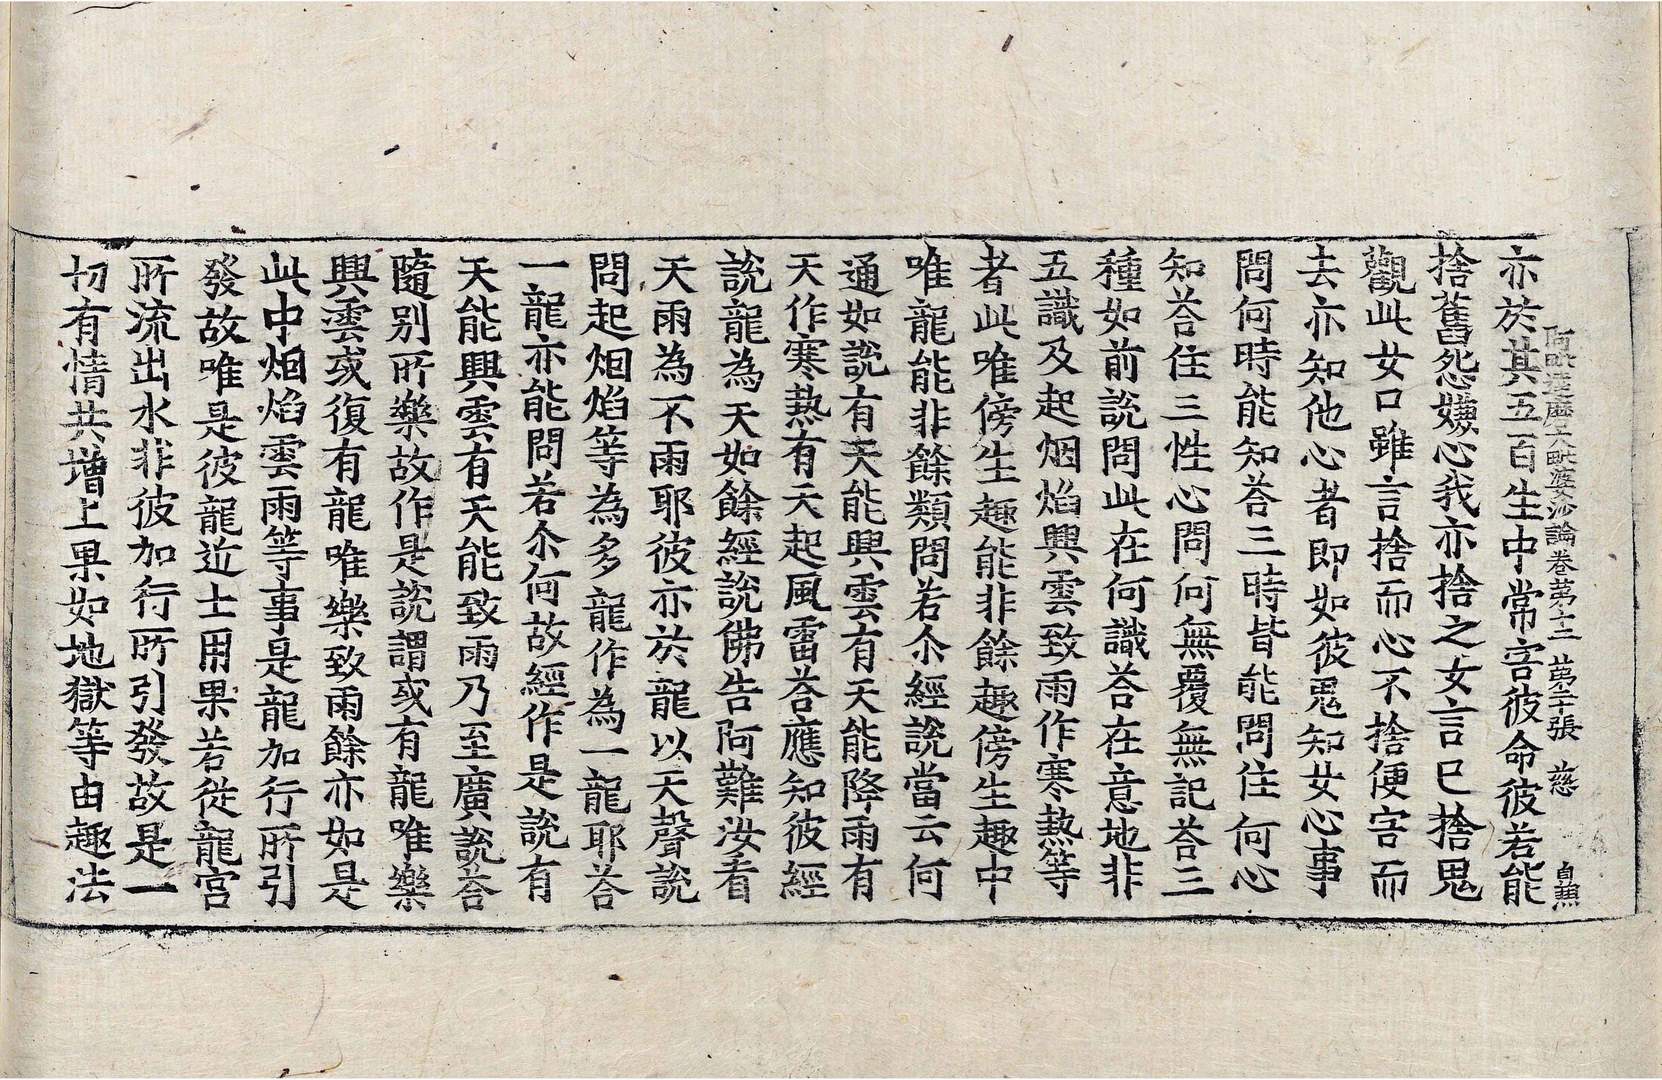 阿毗達磨大毗婆沙論卷苐十二 張 慈
亦於其五百生中常害彼命彼若能
捨舊怨嫌心我亦捨之女言已捨鬼
觀此女口雖言捨而心不捨便害而
去亦知他心者即如彼鬼知女心事
問何時能知荅三時皆能問住何心
知荅住三性心問何無覆無記荅三
種如前說問此在何識荅在意地非
五識及起烟焰興雲致雨作寒熱等
者此唯傍生趣能非餘趣傍生趣中
唯龍能非餘類問若尒經說當云何
通如說有天能興雲有天能降雨有
天作寒熱有天起風雷荅應知彼經
說龍為天如餘經說佛告阿難汝看
天雨為不雨耶彼亦於龍以天聲說
問起烟焰等為多龍作為一龍耶荅
一龍亦能問若尒何故經作是說有
天能興雲有天能致雨乃至廣說荅
隨別所樂故作是說謂或有龍唯樂
興雲或復有龍唯樂致雨餘亦如是
此中烟焰雲雨等事是龍加行所引
發故唯是彼龍近士用果若從龍宮
所流出水非彼加行所引發故是一
切有情共增上果如地獄等由趣法